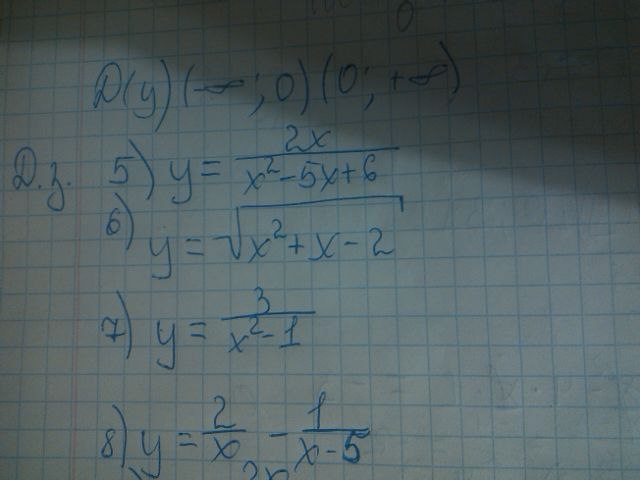 D(y) (-∞; 0) (0; +∞)
Д.з. 5) y = 2x / x² - 5x + 6
6) y = √x² + x - 2
7) y = 3 / x² - 1
8) y = 2 / x - 1 / x - 5